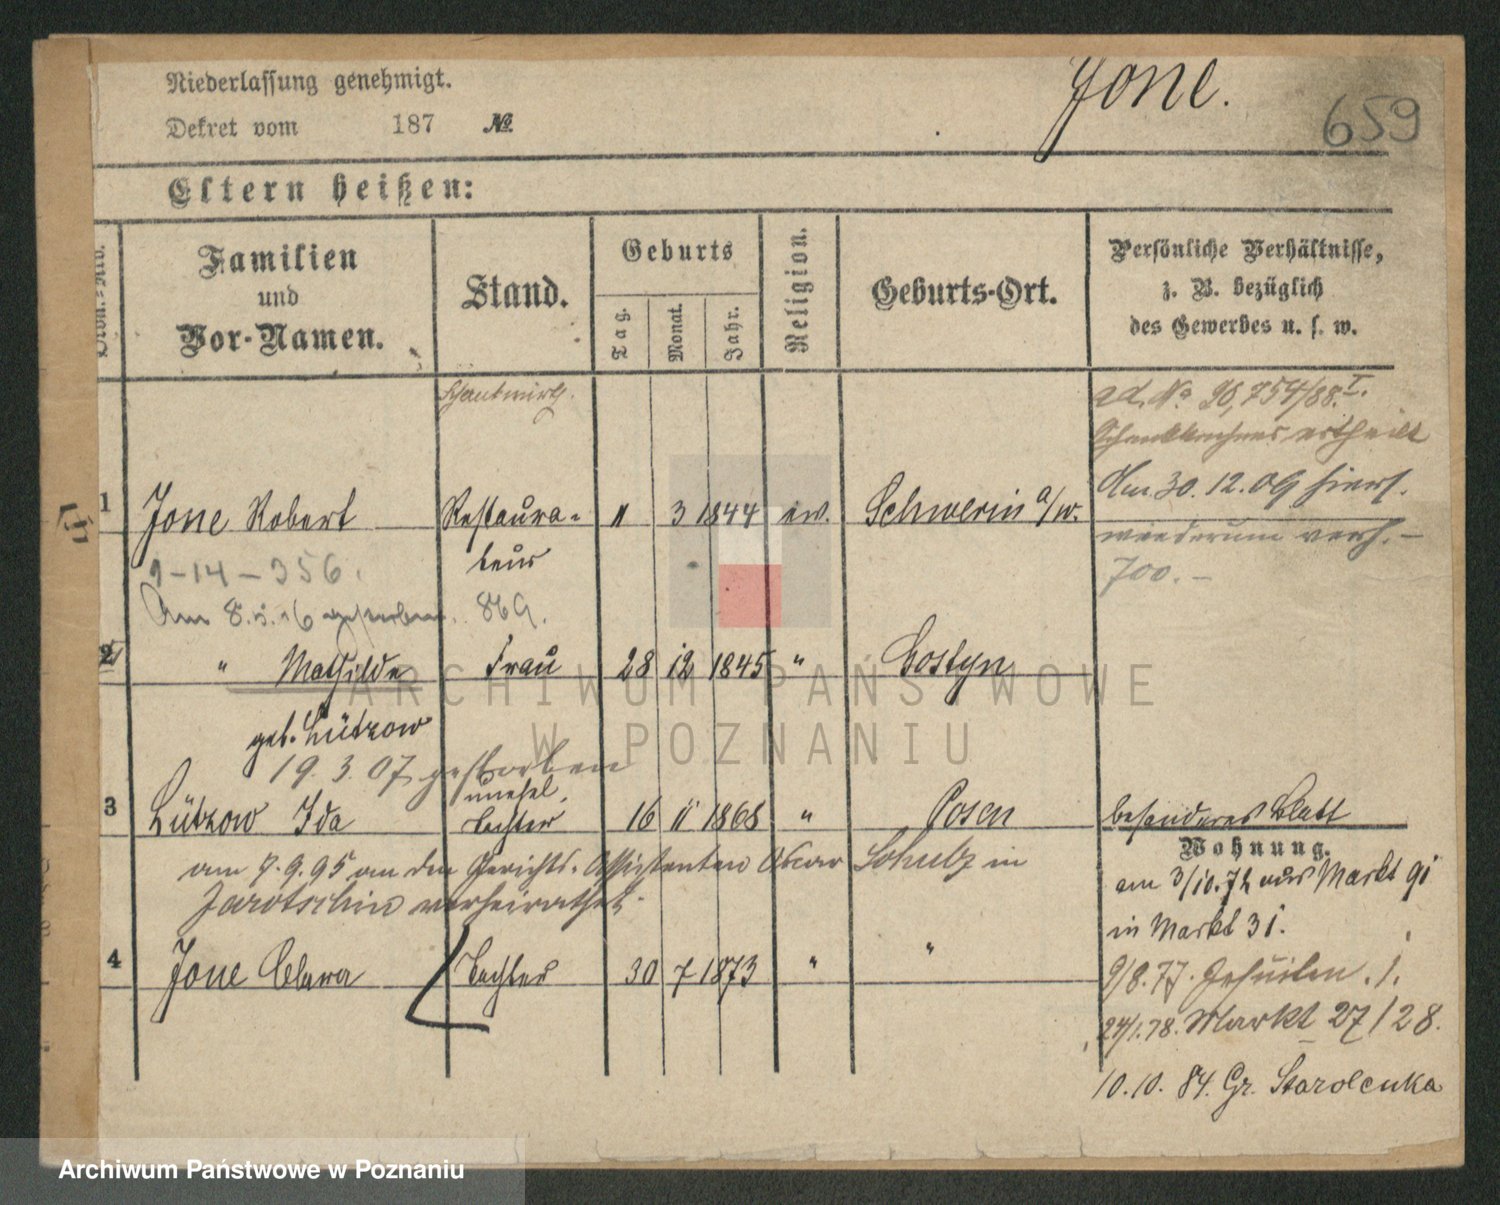 Niederlassung genehmigt.
Jone.
659
Dekret vom 187 No.
Eltern heißen:
Familien
und
Vor-Namen.
Stand.
Geburts
Tag.
Monat.
Jahr.
Religion.
Geburts-Ort.
Persönliche Verhältnisse,
z. B. bezüglich
des Gewerbes u. s. w.
Schankwirth.
ad. No 754/88. I.
ertheilt
Am 30. 12. 09 hiers.
1 Jone Robert Restaura- 11 3 1844 ev. Schwerin a/w.
teur
wiederum verh. –
700. –
9-14-356.
Am 8. 5. 16 gestorben. 869.
2 " Mathilde Frau 28 12 1845 " Gostyn
geb. Lützow
19. 3. 07 gestorben
unehel.
3 Lützow Ida Tochter 16 11 1868 " Posen besonderes Blatt
Wohnung.
am 7. 9. 95 an den Gerichts-Assistenten Oscar Schulz in
Jarotschin verheirathet.
am 3/10. 72 aus Markt 91
in Markt 31.
4 Jone Clara Tochter 30 7 1873 " "
9/8. 77. Jesuiten. 1.
24/1. 78. Markt 27/28.
10. 10. 84. Gr. Starolenka
ARCHIWUM PAŃSTWOWE
W POZNANIU
Archiwum Państwowe w Poznaniu